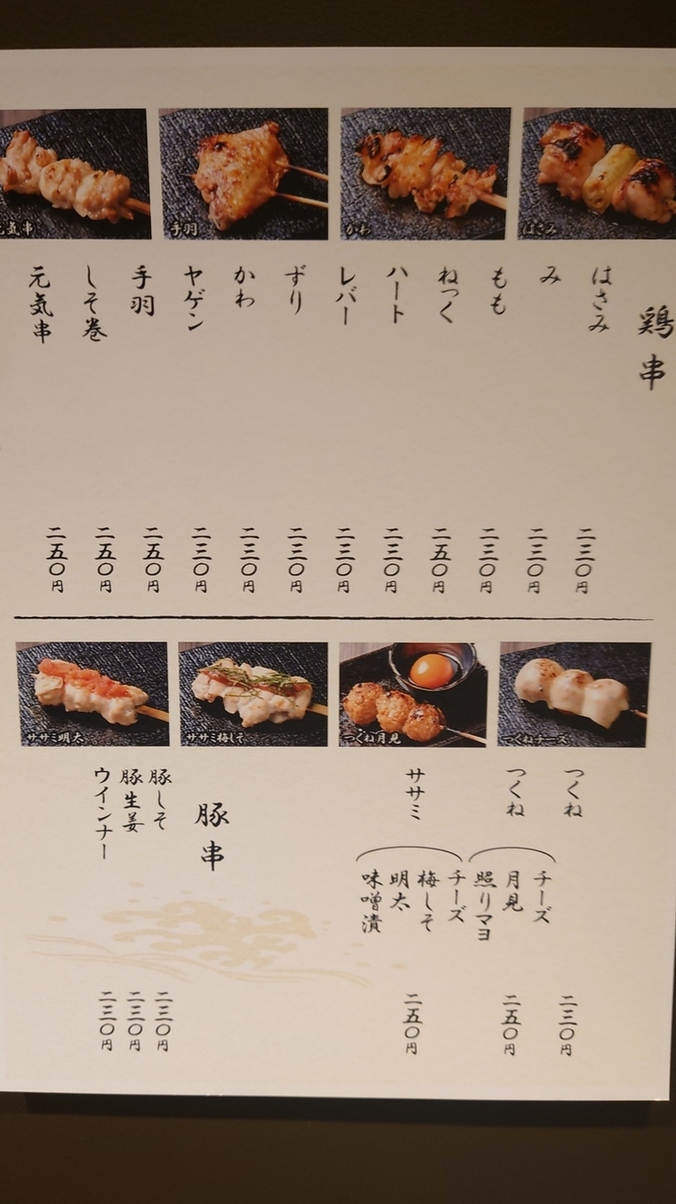 元気串
手羽
かわ
はさみ
鶏串
はさみ 二三〇円
み 二三〇円
もも 二三〇円
ねっく 二五〇円
ハート 二三〇円
レバー 二三〇円
ずり 二三〇円
かわ 二三〇円
ヤゲン 二三〇円
手羽 二五〇円
しそ巻 二五〇円
元気串 二五〇円
ササミ明太
ササミ梅しそ
つくね月見
つくねチーズ
つくね 二三〇円
つくね
チーズ
月見
照りマヨ
二五〇円
ササミ
チーズ
梅しそ
明太
味噌漬
二五〇円
豚串
豚しそ 二三〇円
豚生姜 二三〇円
ウインナー 二三〇円